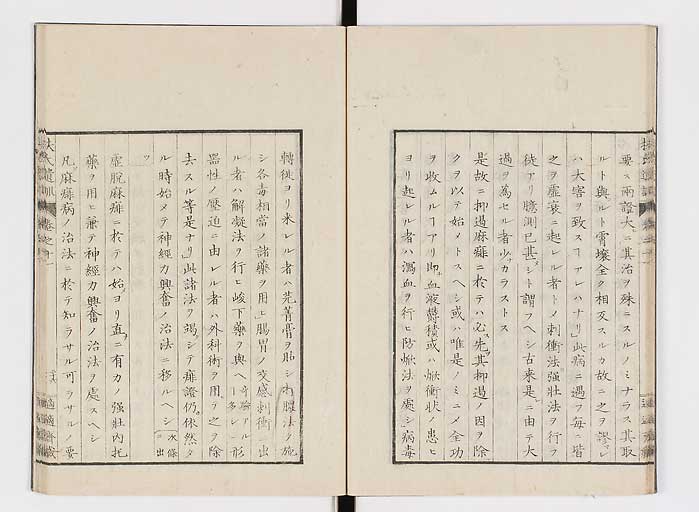 要ス兩證大ニ其治ヲ殊ニスルノミナラス其取
ルト與ルト霄壤全ク相反スルカ故ニ之ヲ謬レ
ハ大害ヲ致スヿアレハナリ此病ニ遇フ毎ニ皆
之ヲ虛衰ニ起レル者トノ刺衝法強壯法ヲ行フ
徒アリ臆測已甚シト謂フヘシ古來是ニ由テ大
過ヲ為セル者少カラストス
是故ニ抑遏麻痺ニ於テハ必先其抑遏ノ因ヲ除
クヲ以テ始メトスヘシ或ハ唯是ノミニメ全功
ヲ收ムルヿアリ即血液鬱積或ハ焮衝狀ノ患ヒ
ヨリ起レル者ハ瀉血ヲ行ヒ防焮法ヲ處シ病毒
轉徙ヨリ來レル者ハ芫菁膏ヲ貼シ打膿法ヲ施
シ各毒相當ノ諸藥ヲ用ヒ腸胃ノ交感刺衝ニ出
ル者ハ解凝法ヲ行ヒ峻下藥ヲ與ヘ
器性ノ壓迫ニ由レル者ハ外科術ヲ用テ之ヲ除
去スル等是ナリ此諸法ヲ竭シテ痺證仍依然タ
ル時始メテ神經力興奮ノ治法ニ移ルヘシ
虛脫麻痺ニ於テハ始ヨリ直ニ有力ノ強壯内托
藥ヲ用ヒ兼テ神經力興奮ノ治法ヲ處スヘシ
凡麻痺病ノ治法ニ於テ知ラサル可ラサルノ要